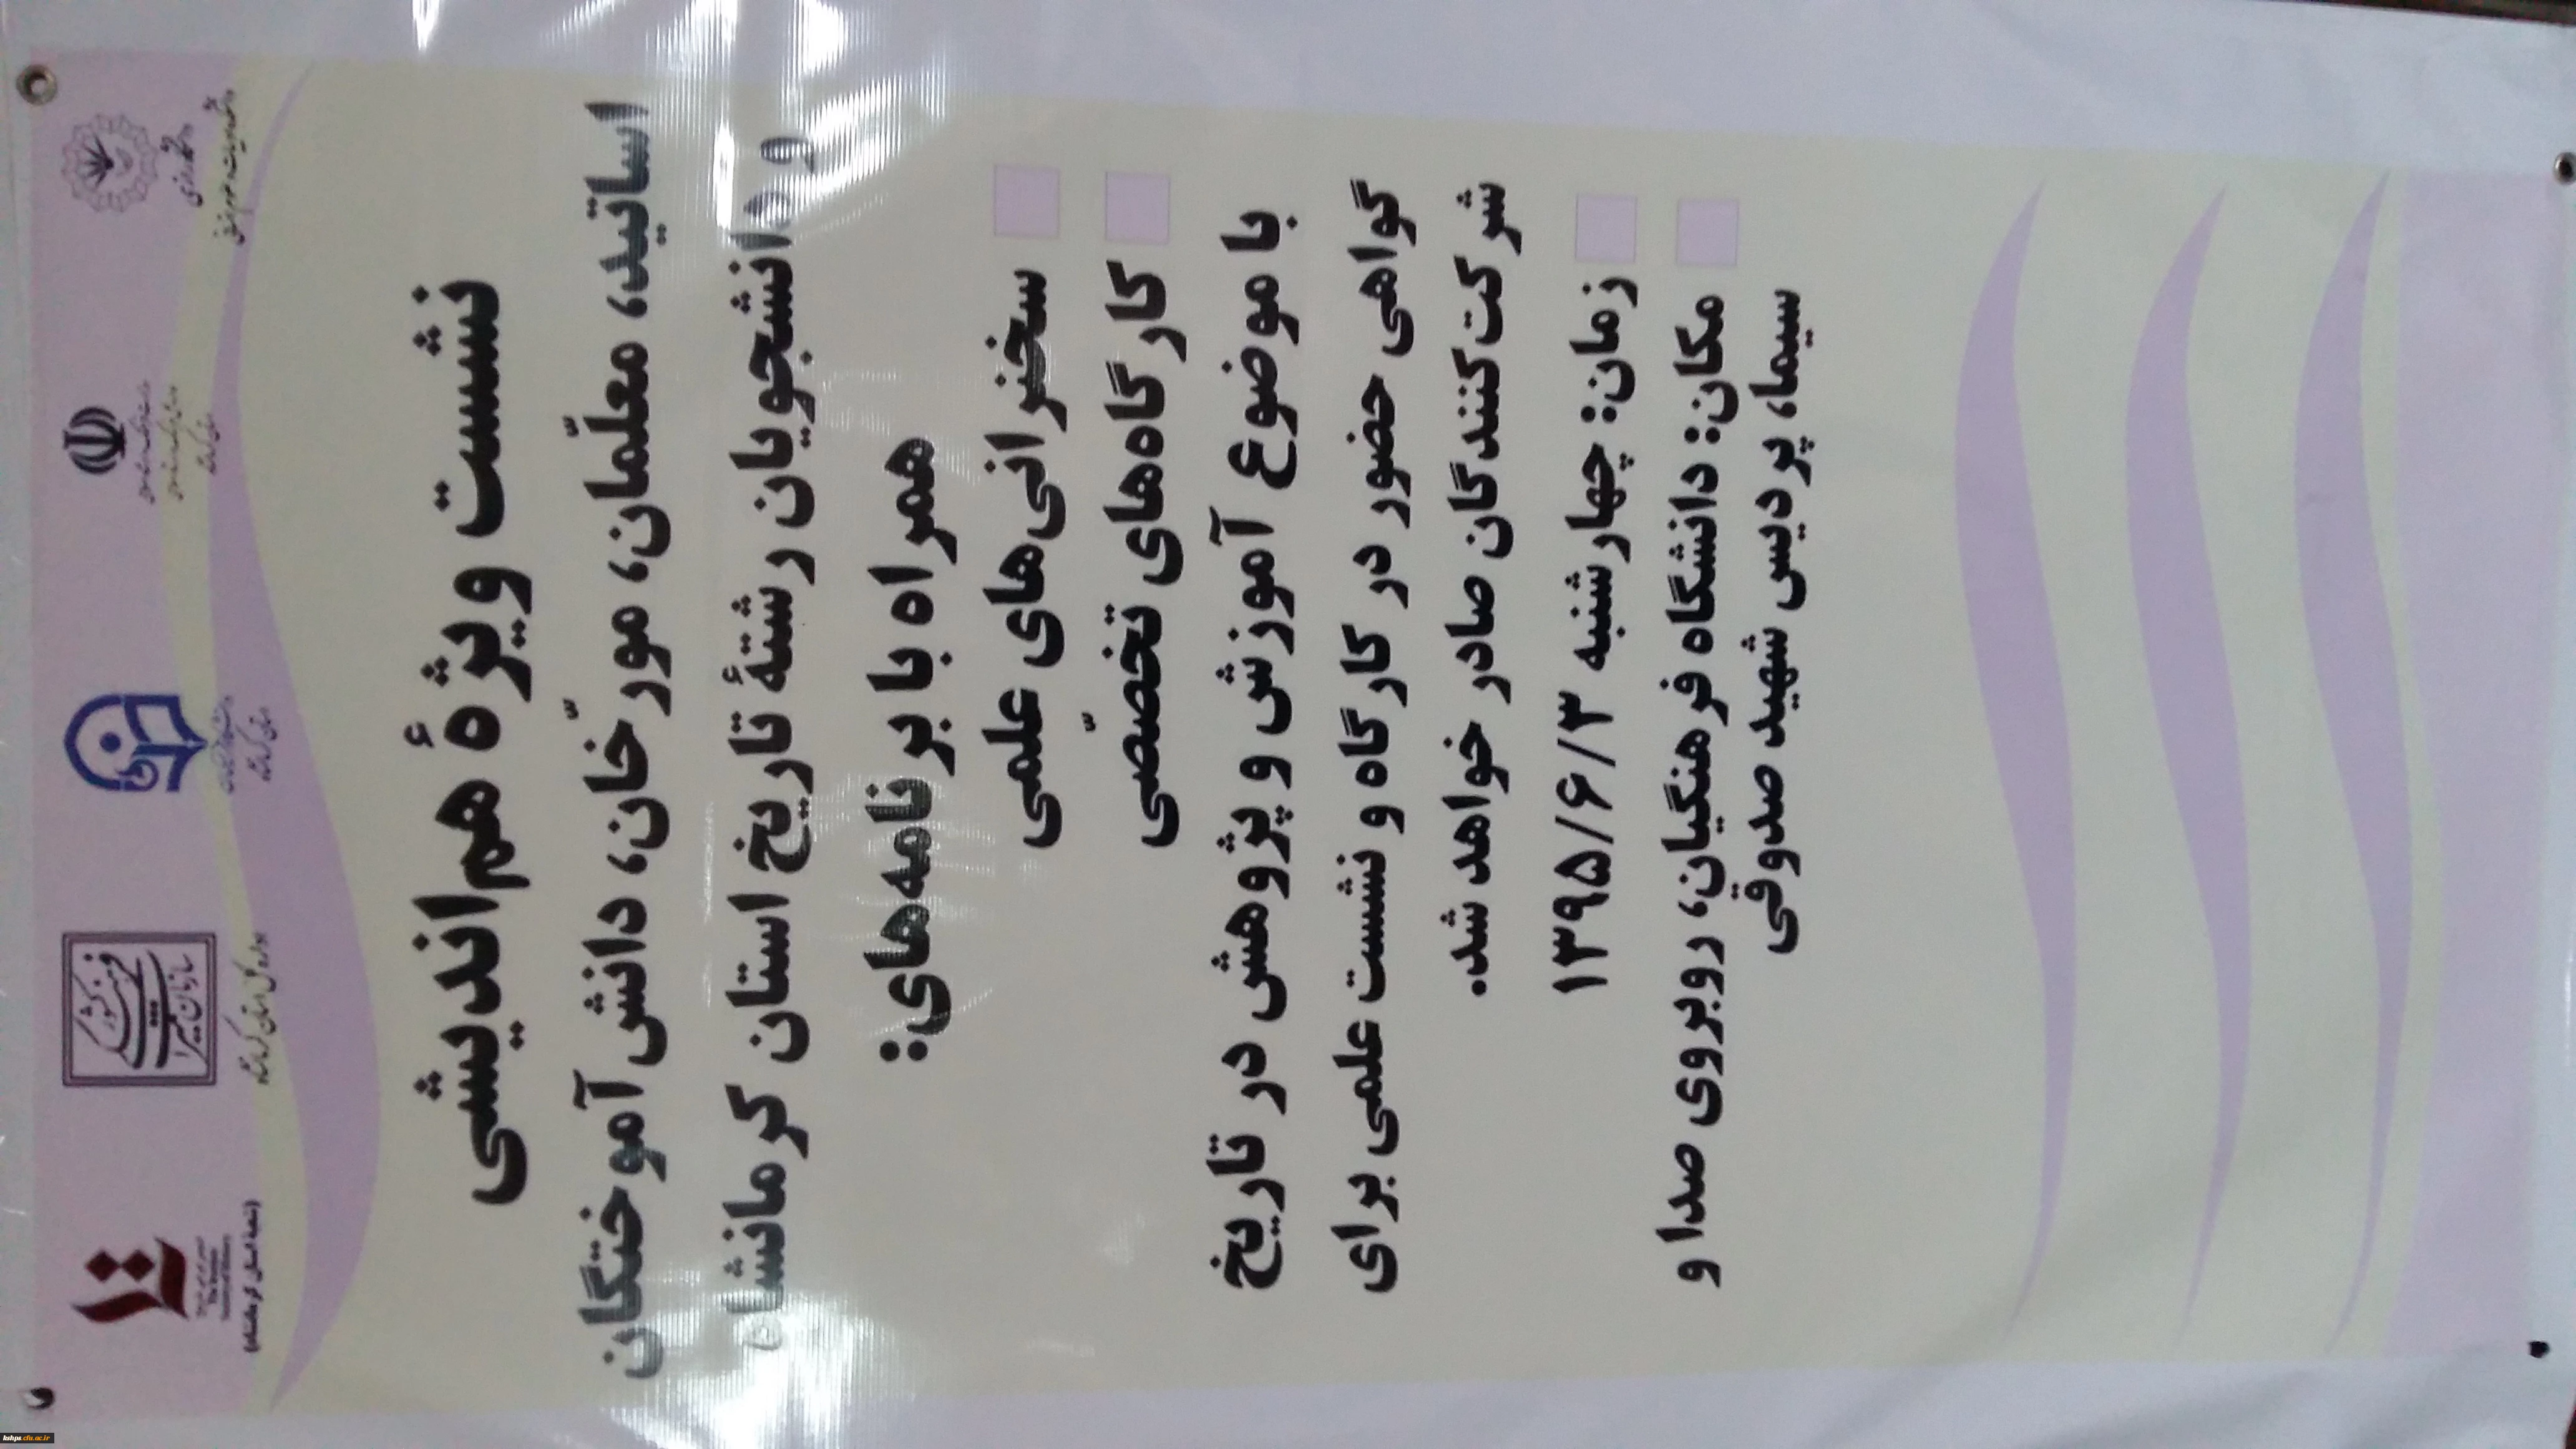 دانشگاه رازی
سازمان میراث فرهنگی کشور
(شعبهٔ استان کرمانشاه)
نشست ویژهٔ هم‌اندیشی
اساتید، معلّمان، مورّخان، دانش آموختگان
و دانشجویان رشتهٔ تاریخ استان کرمانشاه
همراه با برنامه‌های:
سخنرانی‌های علمی
کارگاه‌های تخصّصی
با موضوع آموزش و پژوهش در تاریخ
گواهی حضور در کارگاه و نشست علمی برای
شرکت‌کنندگان صادر خواهد شد.
زمان: چهارشنبه ۱۳۹۵/۶/۳
مکان: دانشگاه فرهنگیان، روبروی صدا و
سیما، پردیس شهید صدوقی
kshps.cfu.ac.ir